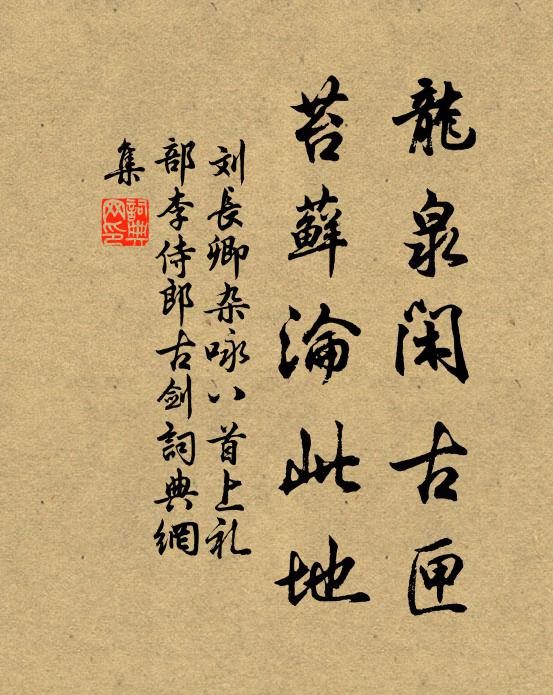 龍泉閑古匣
苔蘚淪此地
刘長卿杂咏八首上礼
部李侍郎古劍詞典網
集
詞典網印